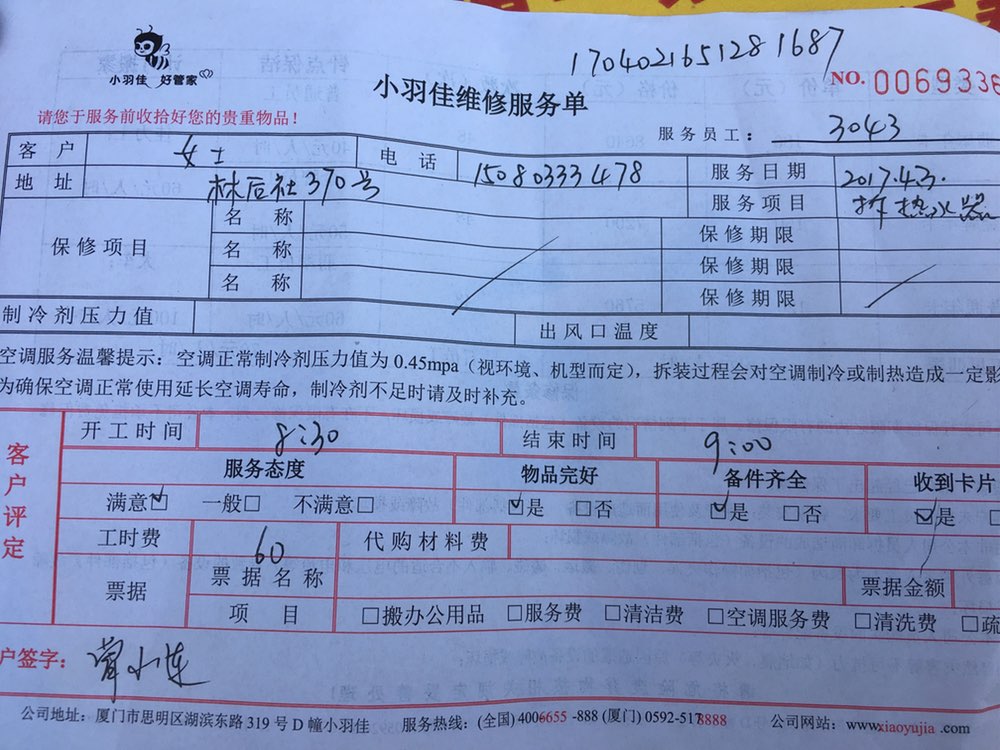 小羽佳 好管家
1704021651281687
小羽佳维修服务单
NO. 0069336
请您于服务前收拾好您的贵重物品！
服务员工： 3043
客户 女士 电话 15080333478 服务日期 2017.4.3.
地址 林后社370号 服务项目 拆热水器
保修项目 名称 保修期限
名称 保修期限
名称 保修期限
制冷剂压力值 出风口温度
空调服务温馨提示：空调正常制冷剂压力值为 0.45mpa（视环境、机型而定），拆装过程会对空调制冷或制热造成一定影
为确保空调正常使用延长空调寿命，制冷剂不足时请及时补充。
客户评定
开工时间 8:30 结束时间 9:00
服务态度 物品完好 备件齐全 收到卡片
满意☑ 一般□ 不满意□ ☑是 □否 ☑是 □否 ☑是 □
工时费 60 代购材料费
票据 票据名称 票据金额
项目 □搬办公用品 □服务费 □清洁费 □空调服务费 □清洗费 □疏
户签字： 小莲
公司地址：厦门市思明区湖滨东路 319 号 D 幢小羽佳 服务热线：(全国) 4006655 -888 (厦门) 0592-5178888 公司网站：www.xiaoyujia .com